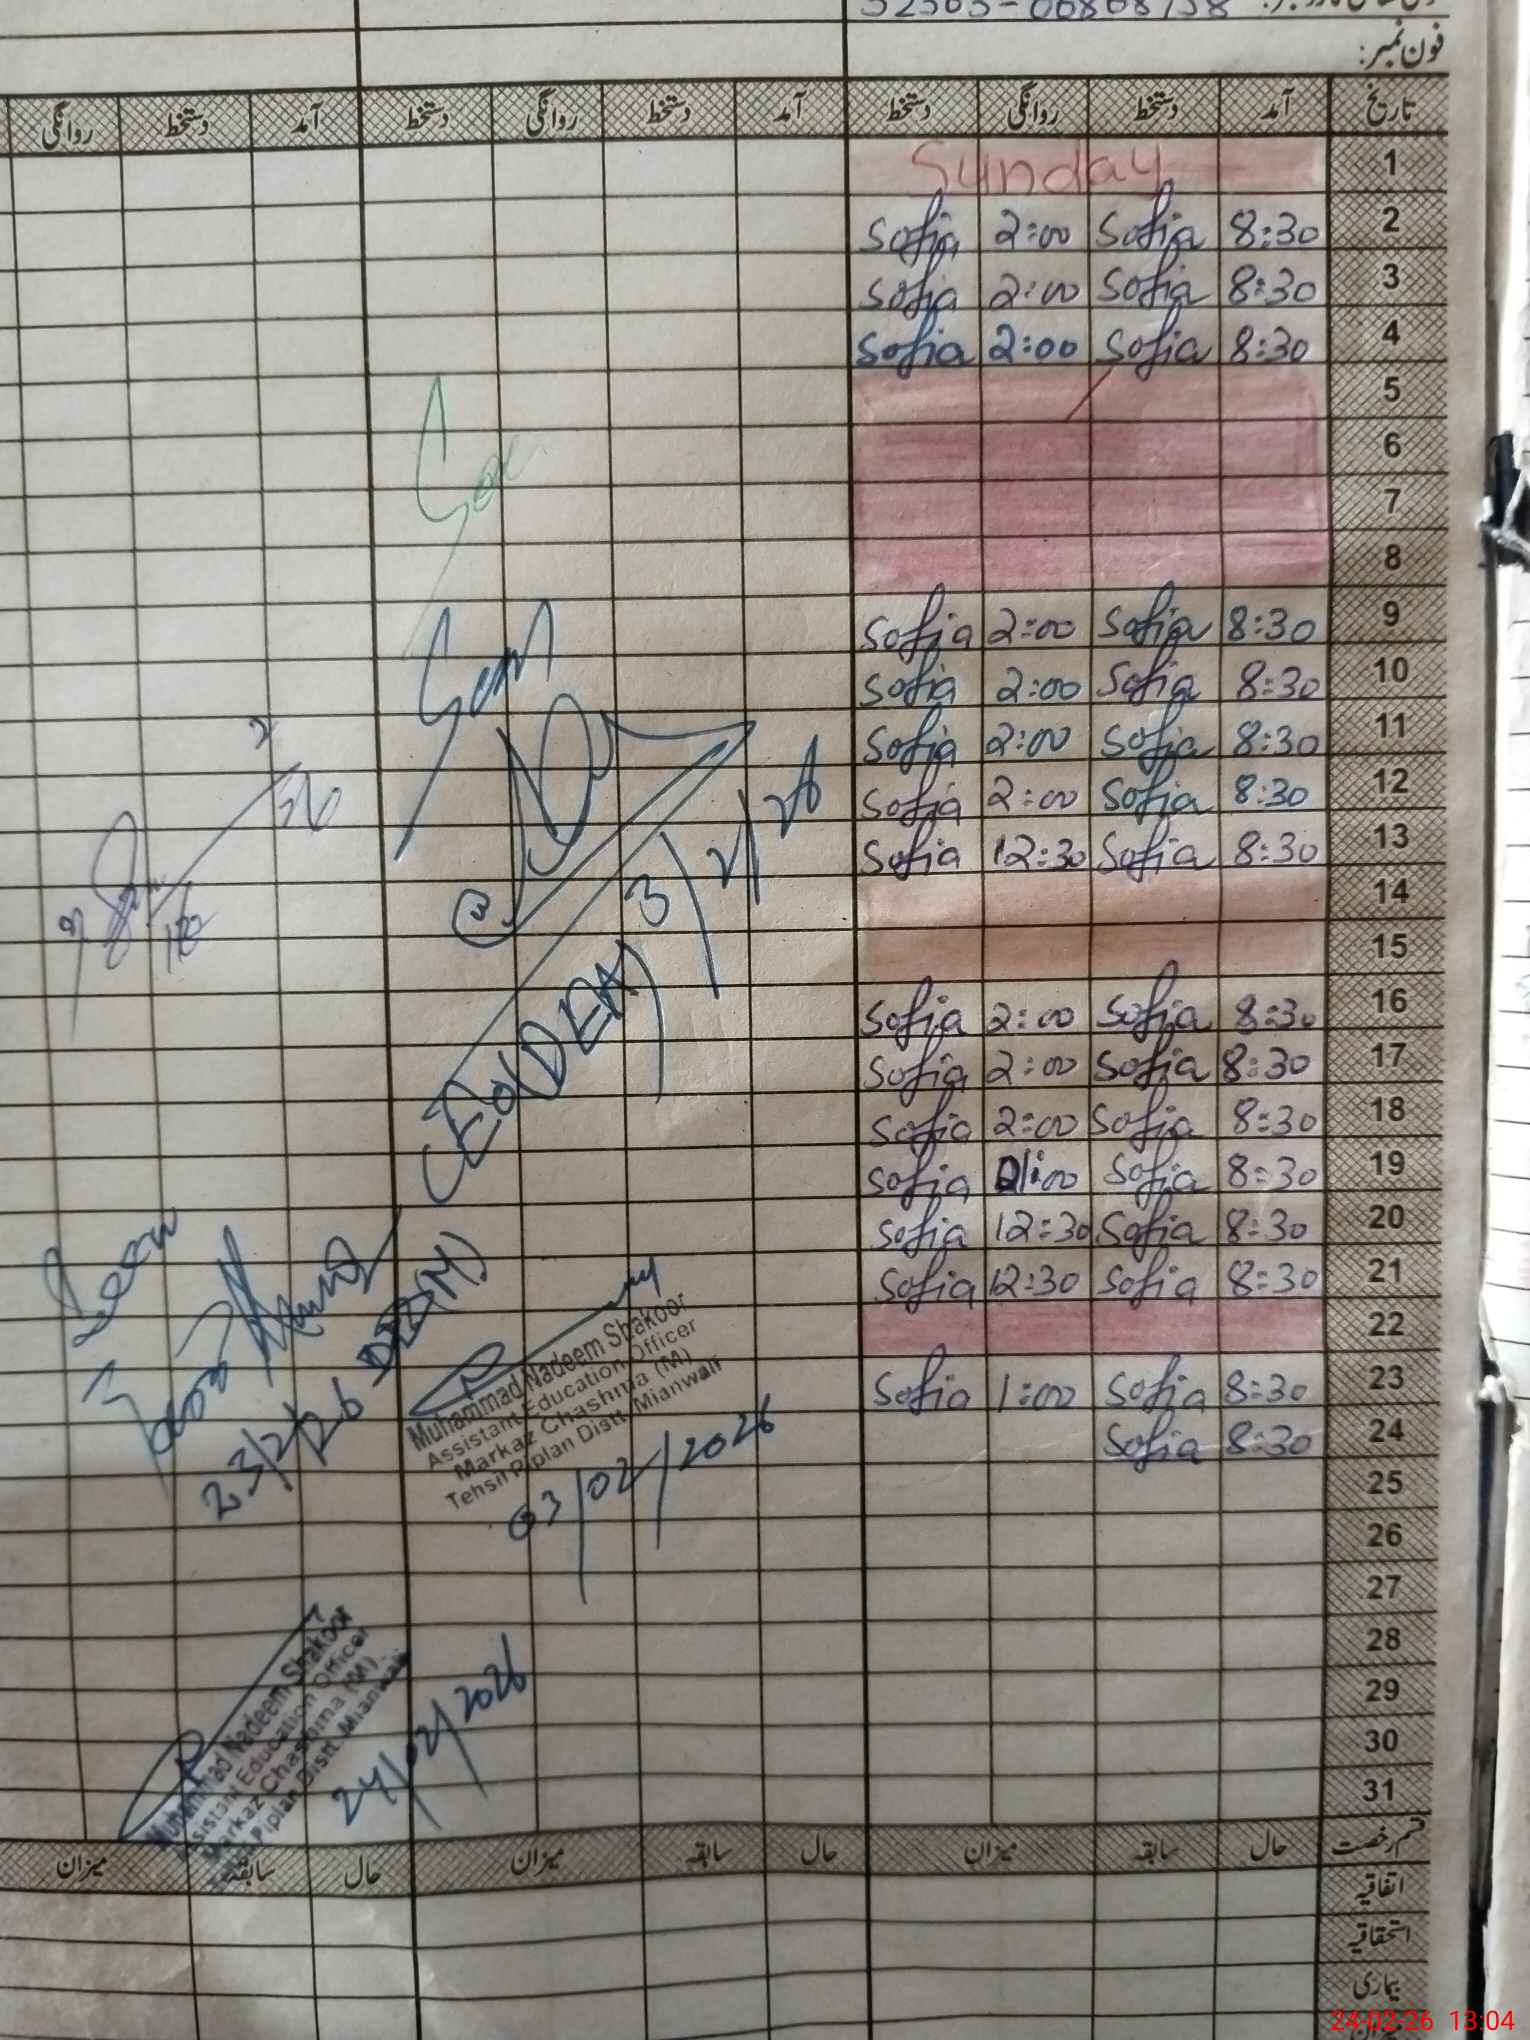 فون نمبر:
تاریخ آمد دستخط روانگی دستخط آمد دستخط روانگی دستخط آمد دستخط روانگی
1 Sunday
2 8:30 Sofia 2:00 Sofia
3 8:30 Sofia 2:00 Sofia
4 8:30 Sofia 2:00 Sofia
5
6
7
8
9 8:30 Sofia 2:00 Sofia
10 8:30 Sofia 2:00 Sofia
11 8:30 Sofia 2:00 Sofia
12 8:30 Sofia 2:00 Sofia
13 8:30 Sofia 12:30 Sofia
14
15
16 8:30 Sofia 2:00 Sofia
17 8:30 Sofia 2:00 Sofia
18 8:30 Sofia 2:00 Sofia
19 8:30 Sofia 1:00 Sofia
20 8:30 Sofia 12:30 Sofia
21 8:30 Sofia 12:30 Sofia
22
23 8:30 Sofia 1:00 Sofia
24 8:30 Sofia
25
26
27
28
29
30
31
قسم رخصت حال سابقہ میزان حال سابقہ میزان حال سابقہ میزان
اتفاقیہ
استحقاقیہ
بیماری
3/2/26
CEO(DEA)
23/2/26
Muhammad Nadeem Shakoor
Assistant Education Officer
Markaz Chashma (M)
Tehsil Piplan Distt. Mianwali
03/02/2026
Muhammad Nadeem Shakoor
Assistant Education Officer
Markaz Chashma (M)
Tehsil Piplan Distt. Mianwali
24/02/2026
24-02-26 13:04